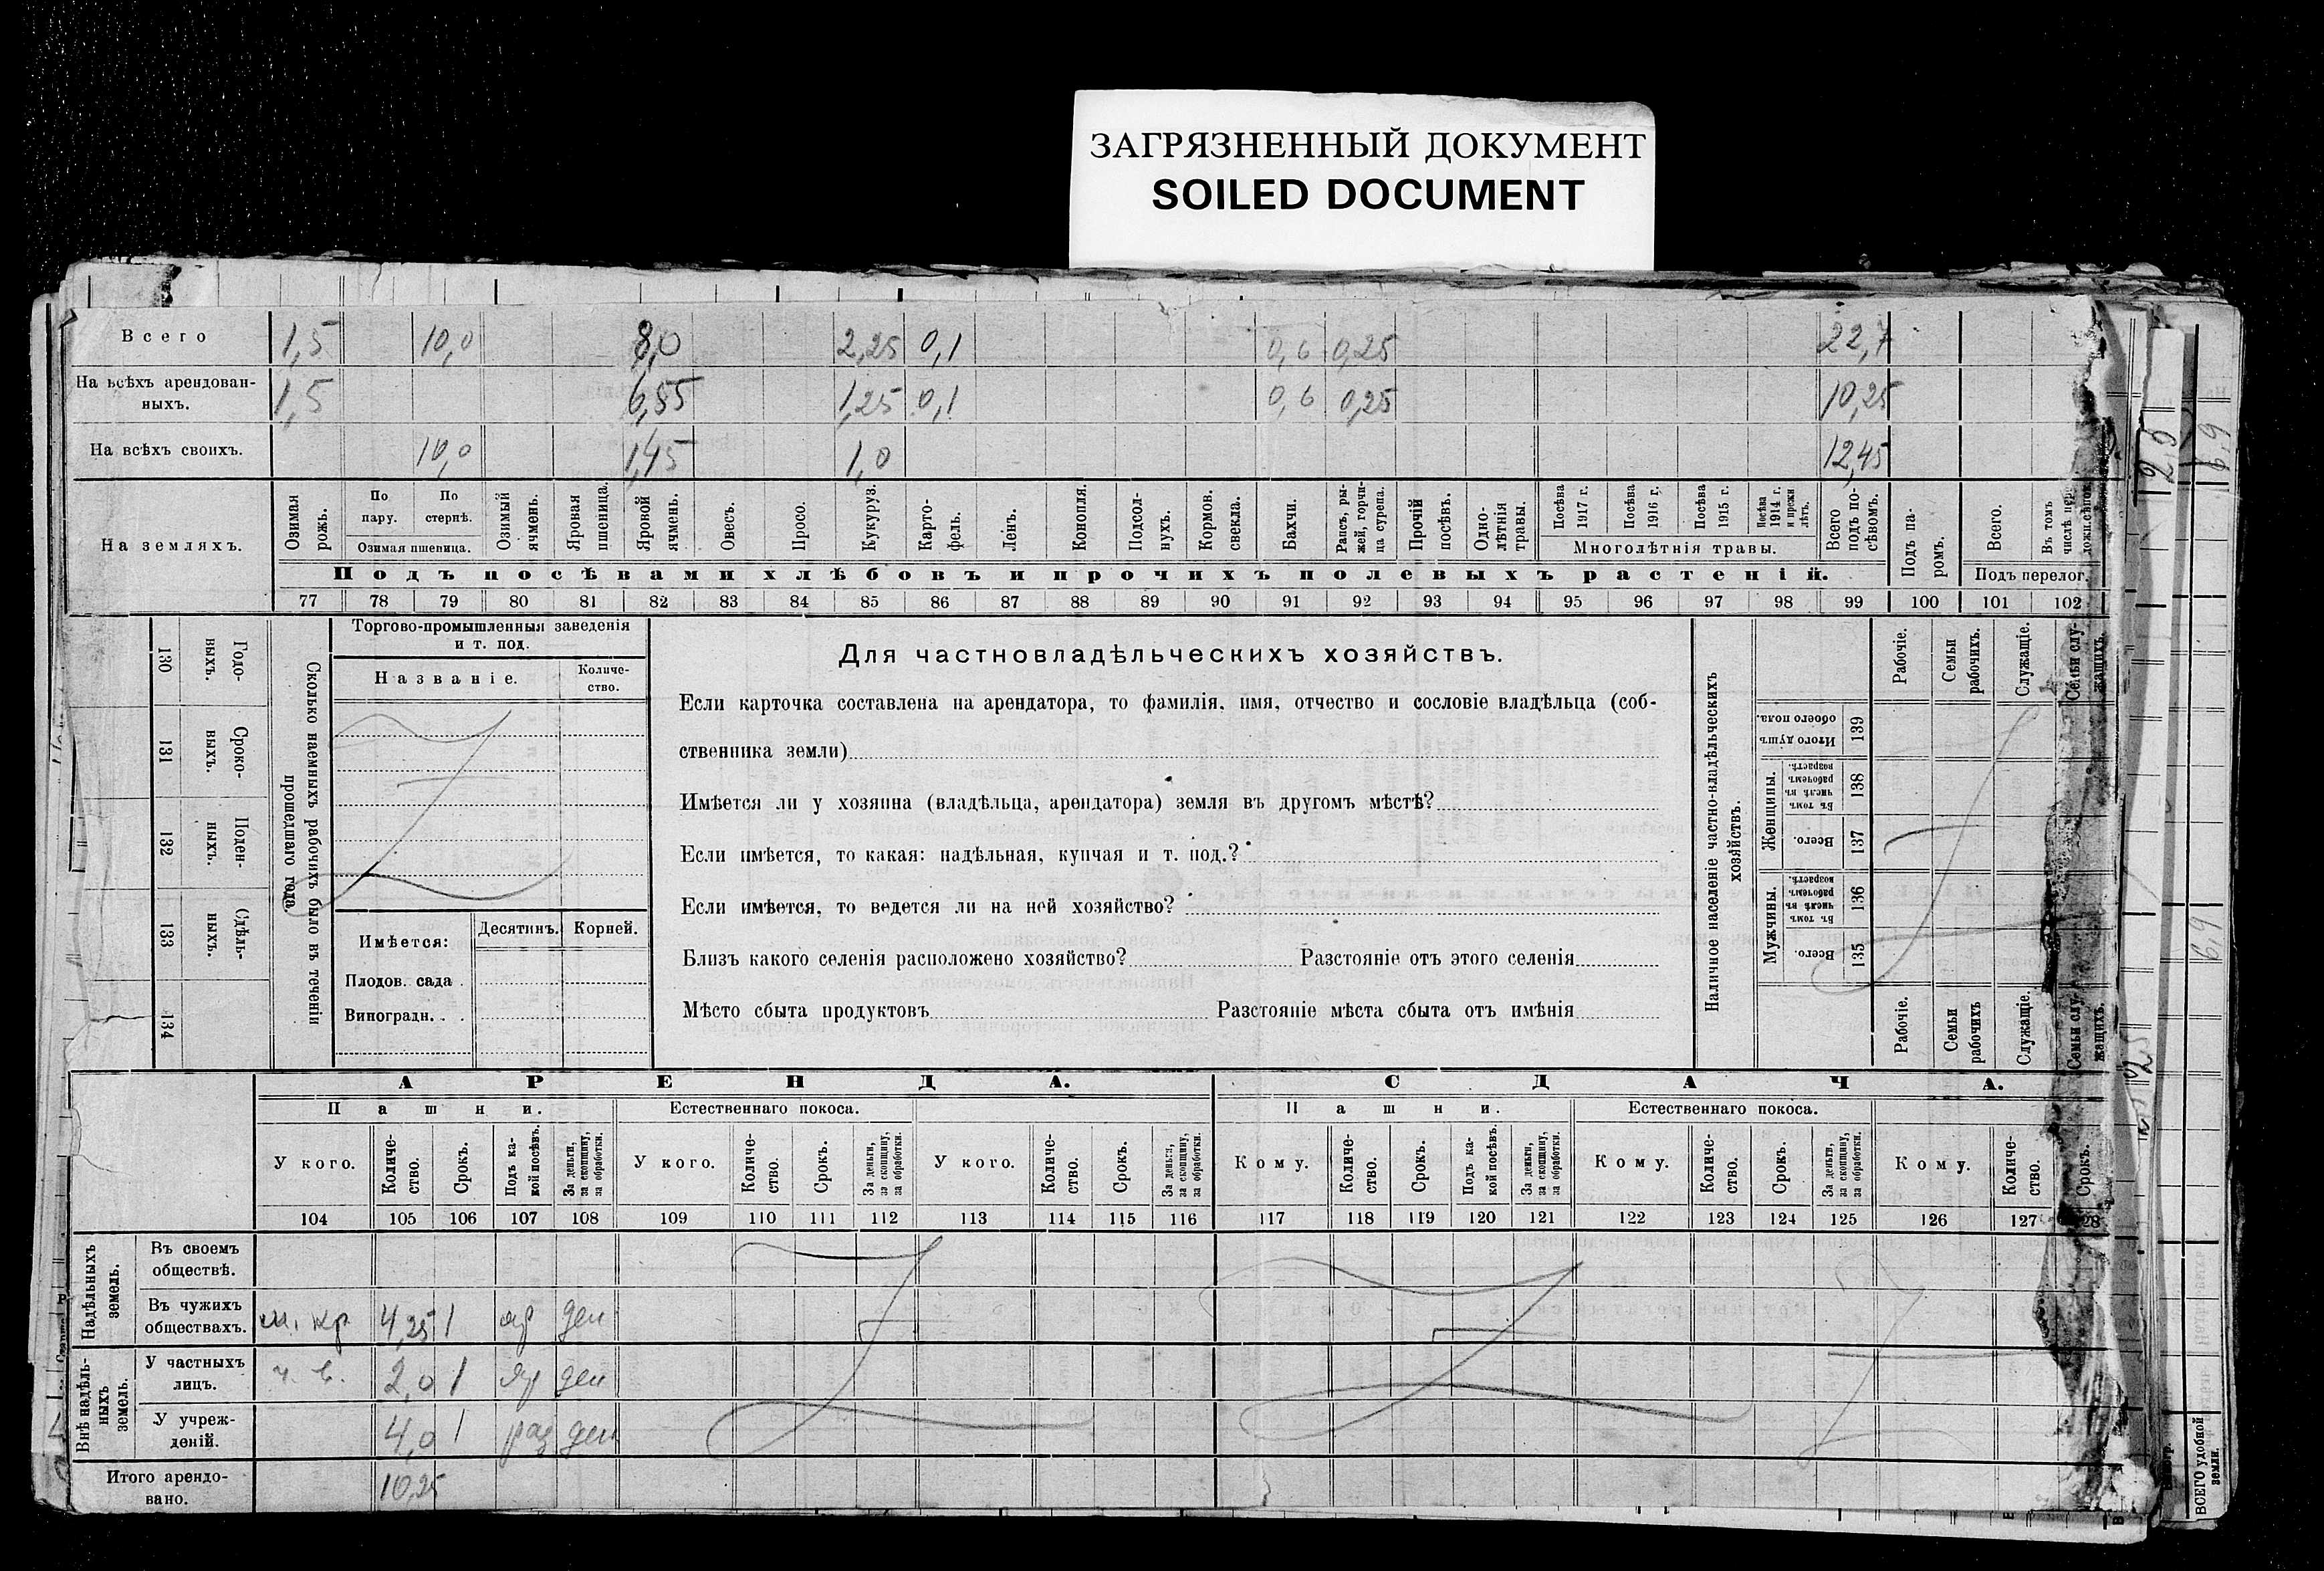 ЗАГРЯЗНЕННЫЙ ДОКУМЕНТ
SOILED DOCUMENT
Всего 1,5 10,0 8,0 2,25 0,1 0,6 0,25 22,7
На всѣхъ арендован-
ныхъ. 1,5 6,55 1,25 0,1 0,6 0,25 10,25
На всѣхъ своихъ. 10,0 1,45 1,0 12,45
На земляхъ.
Озимая рожь.
По пару.
По стернѣ.
Озимая пшеница.
Озимый ячмень.
Яровая пшеница.
Яровой ячмень.
Овесъ.
Просо.
Кукуруз.
Карто-
фель.
Лёнъ.
Конопля.
Подсол-
нухъ.
Кормов. свекла.
Бахчи.
Рапсъ, ры-
жей, горчи-
ца сурепа.
Прочій посѣвъ.
Одно-
лѣтнія травы.
Посѣва 1917 г.
Посѣва 1916 г.
Посѣва 1915 г.
Посѣва 1914 г. и прежн лѣтъ.
Многолѣтнія травы.
Всего подъ по-
сѣвомъ.
Подъ па-
ромъ.
Всего.
Въ томъ числѣ
Подъ перелог.
Подъ посѣвами хлѣбовъ и прочихъ полевыхъ растеній.
77 78 79 80 81 82 83 84 85 86 87 88 89 90 91 92 93 94 95 96 97 98 99 100 101 102
Сколько наемныхъ рабочихъ было въ теченіи
прошедшаго года.
Годо-
выхъ. 130
Сроко-
выхъ. 131
Поден-
ныхъ. 132
Сдѣль-
ныхъ. 133
134
Торгово-промышленныя заведенія
и т. под.
Названіе. Количе-
ство.
Имѣется: Десятинъ. Корней.
Плодов. сада .
Виноградн. .
Для частновладѣльческихъ хозяйствъ.
Если карточка составлена на арендатора, то фамилія, имя, отчество и сословіе владѣльца (соб-
ственника земли)
Имѣется ли у хозяина (владѣльца, арендатора) земля въ другомъ мѣстѣ?
Если имѣется, то какая: надѣльная, купчая и т. под.?
Если имѣется, то ведется ли на ней хозяйство?
Близъ какого селенія расположено хозяйство? Разстояніе отъ этого селенія
Мѣсто сбыта продуктовъ Разстояніе мѣста сбыта отъ имѣнія
Наличное населеніе частно-владѣльческихъ
хозяйствъ.
Рабочіе.
Семьи рабочихъ.
Служащіе.
Семьи слу-
жащихъ.
Итого душъ обоего пола. 139
Женщины.
Въ томъ числѣ въ рабочемъ возрастѣ. 138
Всего. 137
Мужчины.
Въ томъ числѣ въ рабочемъ возрастѣ. 136
Всего. 135
Рабочіе.
Семьи рабочихъ
Служащіе.
Семьи слу-
жащихъ.
АРЕНДА. СДАЧА.
Пашни. Естественнаго покоса. Пашни. Естественнаго покоса.
У кого. Количе-
ство. Срокъ. Подъ ка-
кой посѣвъ. За деньги, за скопщину, за обработки.
У кого. Количе-
ство. Срокъ. За деньги, за скопщину, за обработки.
У кого. Количе-
ство. Срокъ. За деньги, за скопщину, за обработки.
Кому. Количе-
ство. Срокъ. Подъ ка-
кой посѣвъ. За деньги, за скопщину, за обработки.
Кому. Количе-
ство. Срокъ. За деньги, за скопщину, за обработки.
Кому. Количе-
ство. Срокъ.
104 105 106 107 108 109 110 111 112 113 114 115 116 117 118 119 120 121 122 123 124 125 126 127 28
Надѣльныхъ земель.
Въ своемъ
обществѣ.
Въ чужихъ
обществахъ. 4,25 1 яр ден
Внѣ надѣль-
ныхъ земель.
У частныхъ
лицъ. ч. в. 2,0 1 яр ден
У учреж-
деній. 4,0 1 раз ден
Итого арендо-
вано. 10,25
6,9
6,9
ВСЕГО удобной
земли.